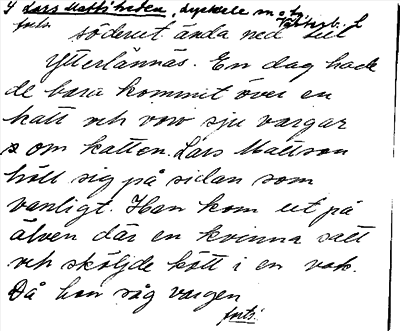 Lars Matts heden, Lycksele
forts. söderut ända ned till
Ytterlännäs. En dag hade
de bara kommit över en
katt och vov sju vargar
om katten. Lars Mattson
höll sig på sidan som
vanligt. Han kom ut på
älven där en kvinna satt
och sköljde kött i en vak.
Då hon såg vargen
forts.